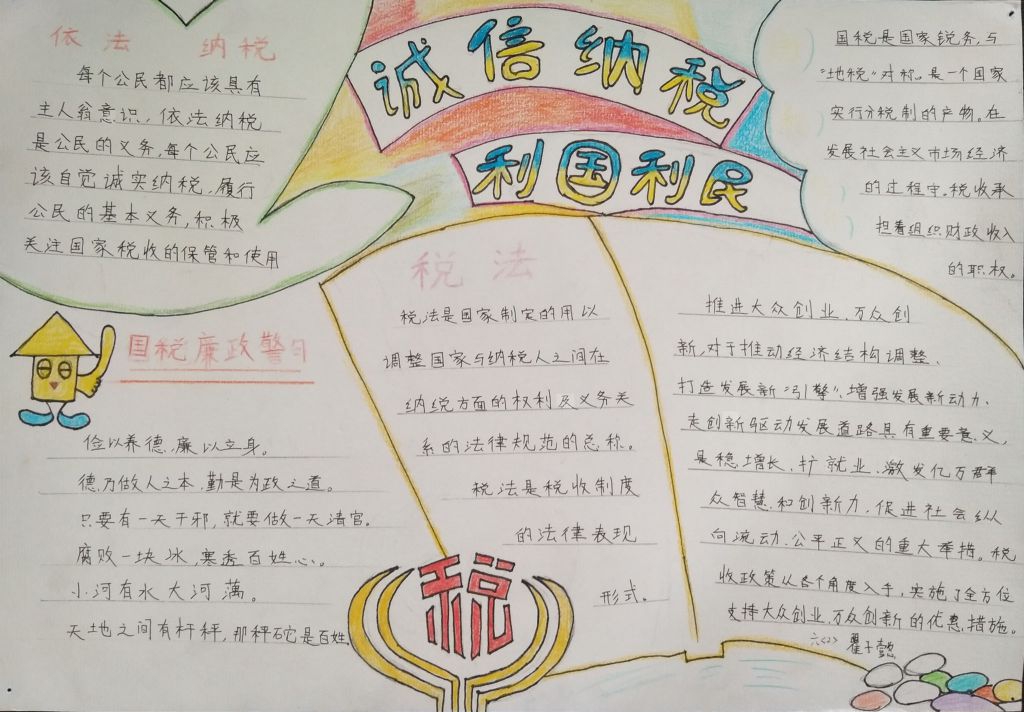 诚信纳税
利国利民
依法 纳税
每个公民都应该具有
主人翁意识,依法纳税
是公民的义务,每个公民应
该自觉诚实纳税,履行
公民的基本义务,积极
关注国家税收的保管和使用
国税是国家税务,与
“地税”对称。是一个国家
实行分税制的产物。在
发展社会主义市场经济
的过程守,税收承
担着组织财政收入
的职权。
国税廉政警句
俭以养德,廉以立身。
德乃做人之本,勤是为政之道。
只要有一天干邪,就要做一天清官。
腐败一块冰,寒透百姓心。
小河有水大河满。
天地之间有杆秤,那秤砣是百姓
税法
税法是国家制定的用以
调整国家与纳税人之间在
纳税方面的权利及义务关
系的法律规范的总称。
税法是税收制度
的法律表现
形式。
推进大众创业,万众创
新,对于推动经济结构调整、
打造发展新“引擎”、增强发展新动力、
走创新驱动发展道路具有重要意义,
是稳增长、扩就业、激发亿万群
众智慧和创新力,促进社会纵
向流动、公平正义的重大举措。税
收政策从各个角度入手,实施了全方位
支持大众创业,万众创新的优惠措施。
六(2)
税